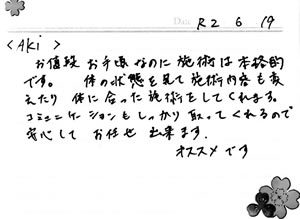 Date R2 6 19
<Aki>
お値段 お手頃なのに 施術は本格的
です。 体の状態を見て施術内容も変
えたり 体に合った施術をしてくれます。
コミュニケーションもしっかり取ってくれるので
安心して お任せ 出来ます.
オススメです